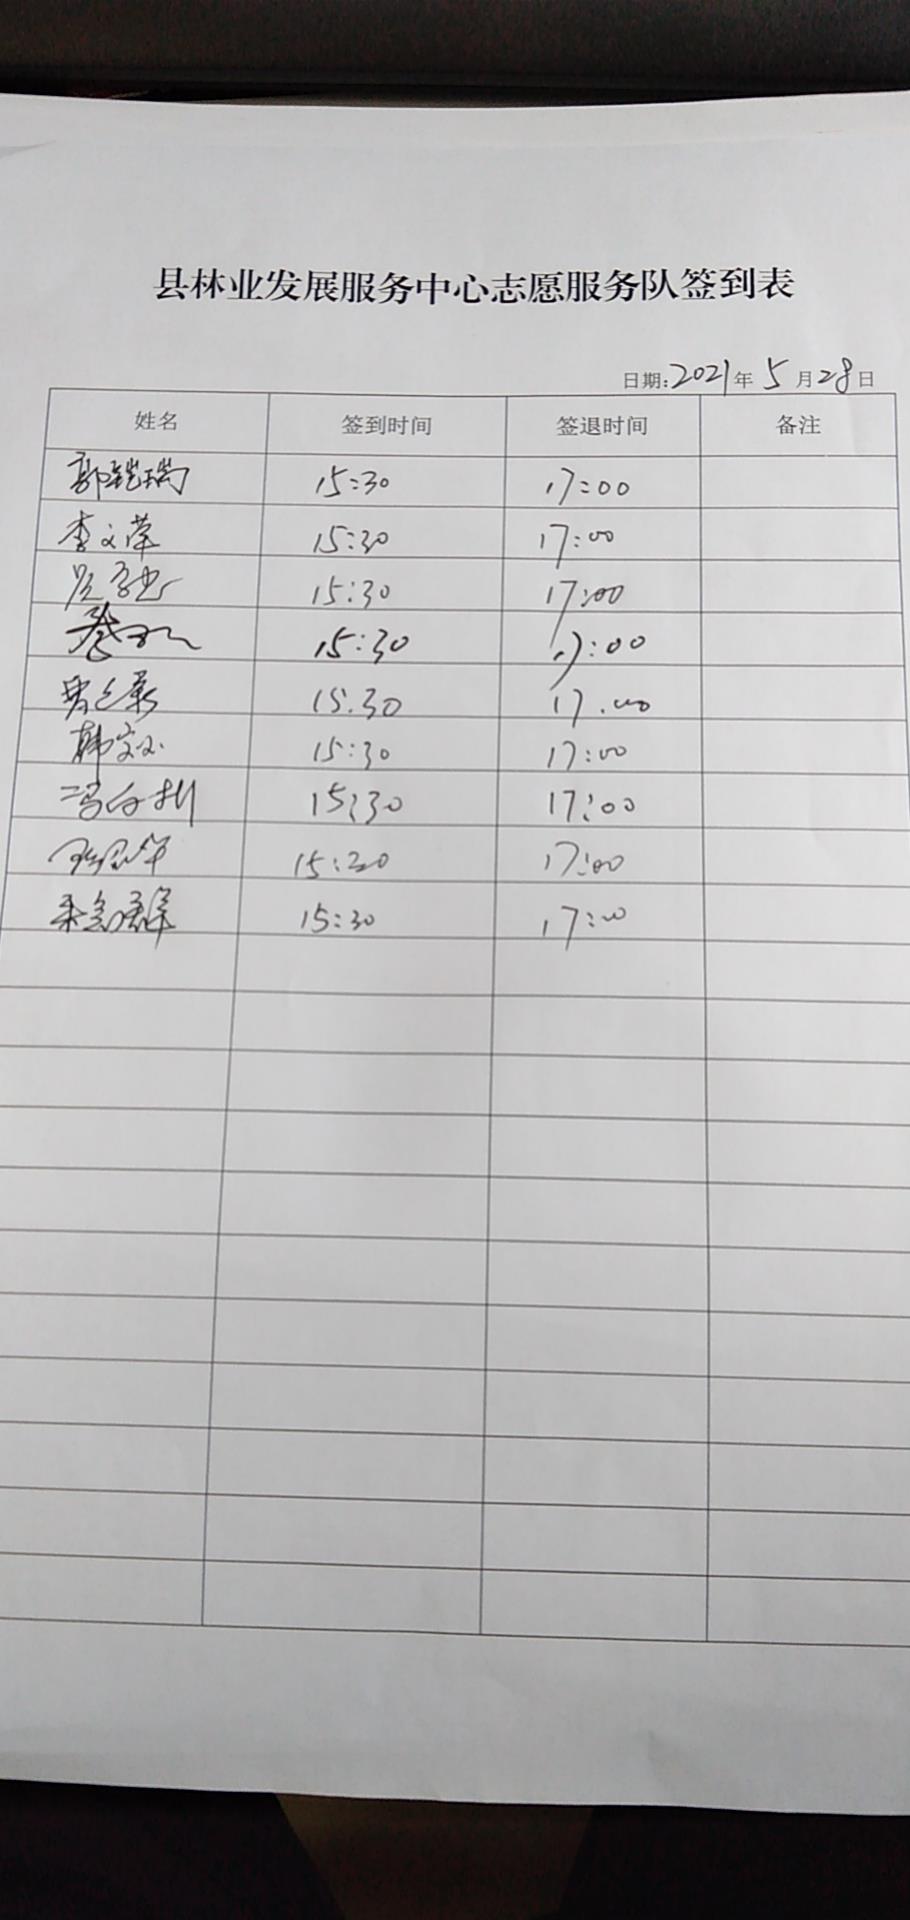 县林业发展服务中心志愿服务队签到表
日期:2021年5月28日
姓名 签到时间 签退时间 备注
郭铠瑞 15:30 17:00
李文萍 15:30 17:00
15:30 17:00
15:30 17:00
15:30 17:00
韩 15:30 17:00
冯 15:30 17:00
15:20 17:00
15:30 17:00